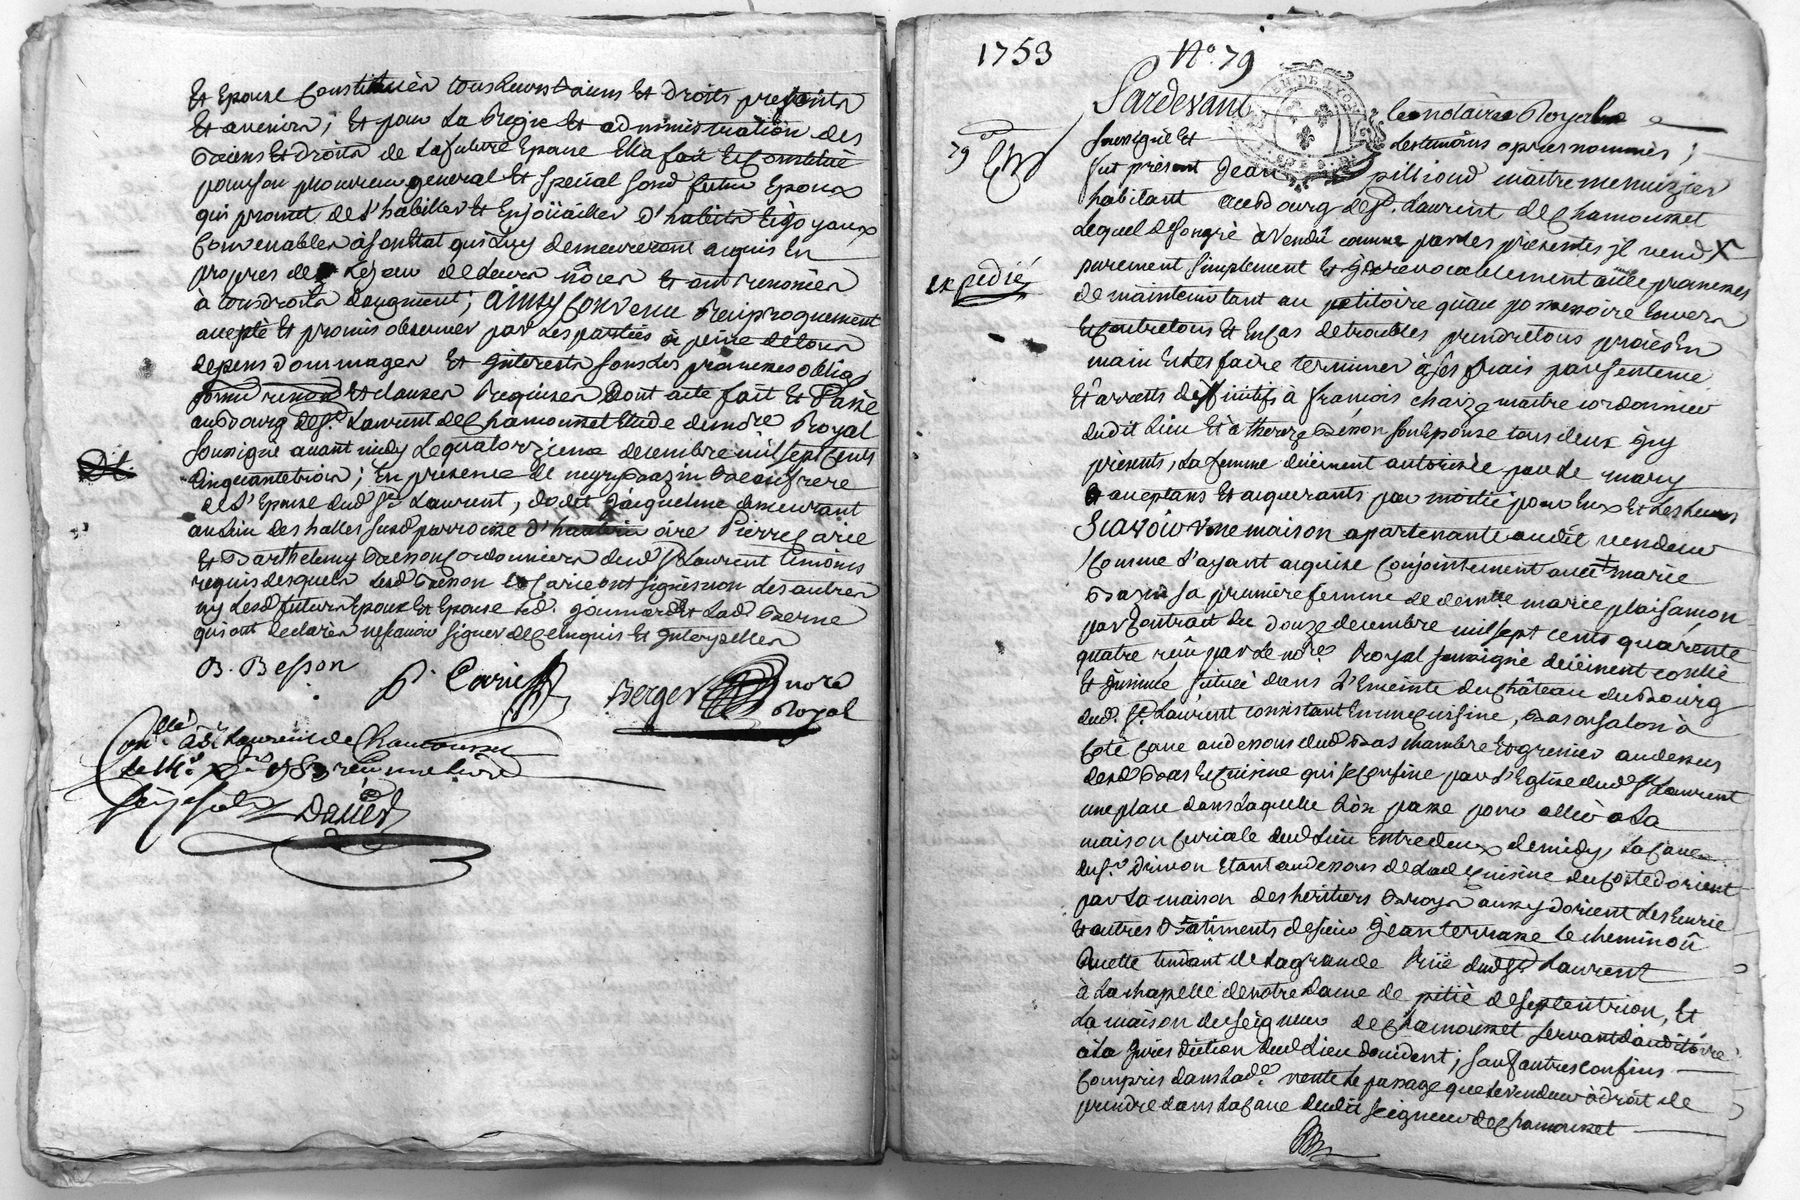 Et Epouse Constituéer tous leurs biens Et Droits presents
Et avenirs; Et pour La Regie Et administration des
biens Et droits de La future Epouse Ella fait Et Constitué
pour son procureur general Et special sond. futur Epoux
qui promet de l'habiller Et Enjoüailler d'habits Et joyaux
Convenables à son Etat qui Luy demeureront acquis En
propres de Le jour de Leurs nôces Et ont renoncéer
à tous droits daugment; ainsy Convenu Reciproquement
accepté Et promis observer par Les parties à peine de tous
depens dommages Et Interests sous Les promesses oblig.
Et clauses Requises Dont acte fait Et Passé
au Bourg de St. Laurent de Chamousset Etude du nore. Royal
soussigné avant midy Le quatorzieme decembre mil sept cents
Cinquante trois; En presence de
Dit.
de l'Epouse dud. St. Laurent, Jacqueline demeurant
au Lieu des halles susd. parroisse d'hauterive Pierre Carie
Et Barthelemy Besson Cordonniers dud. St. Laurent temoins
requis desquels Lesd. Besson Et Carie ont signés non Les autres
ny Lesd. futurs Epoux Et Epouse Led. goimard Et Lad. Berne
qui ont declarés ne scavoir signer de Ce Enquis Et Interpellés
B. Besson
P. Carie
Berger nore
Royal
Conllé. à St Laurent de Chamousset
le 14e. xbre 1753 reçu une livre
seize sols
David
1753
No. 79
Pardevant Le notaire Royal
79e
soussigné Et Les temoins apres nommés;
fut présent Jean pillioud maitre menuizier
habitant au Bourg de St. Laurent de Chamousset
Lequel de son gré à Vendû comme par Les présentes il vend X
purement simplement Et Irrevocablement avec promesses
expedié
de maintenir tant au petitoire qu'au possessoire Envers
Et Contre tous Et En Cas de troubles prendre tous procés En
main Et Les faire terminer à ses frais par sentence
Et arrests deffinitifs à francois charze maitre cordonnier
dudit Lieu Et à thereze Besson son Epouse tous deux Icy
présents, La femme deüement autorisée par Le mary
acceptans Et acquerants par moitié pour Eux Et Les Leurs
Scavoir Une maison apartenante audit vendeur
Comme L'ayant acquise Conjointement avec + marie
Barin sa premiere femme de demlle marie plaisamon
par Contrat du Douze decembre mil sept cents quarente
quatre reçu par Le nore. Royal soussigné deüement conllé
Et Insinué située dans L'Enceinte du Château du Bourg
dud. St. Laurent consistant En une Cuisine, Bas ou salon à
Coté Cave au dessous dud. Bas chambre Et grenier au dessus
desd. Bas Et Cuisine qui se Confine par L'Eglise dud. St Laurent
une place dans Laquelle L'on passe pour aller à La
maison Curiale dud. Lieu Entre deux de midy, La Cave
du Sr. Drivon Etant au dessous de Lad. Cuisine du Costé d'orient
par La maison des heritiers Broyer aussy d'orient Les Ecurie
Et autres Batiments de sieur Jean terrasse Le chemin oû
Ruette tendant de La grande Rüe dud. St Laurent
à La chapelle de notre Dame de pitié de septentrion, Et
La maison du seigneur de Chamousset servant d'auditoire
à La Jurisdiction dud. Lieu doccident; sauf autres confins
Compris dans Lade. vente Le passage que Le vendeur à droit de
prendre dans La Cave dudit seigneur de Chamousset